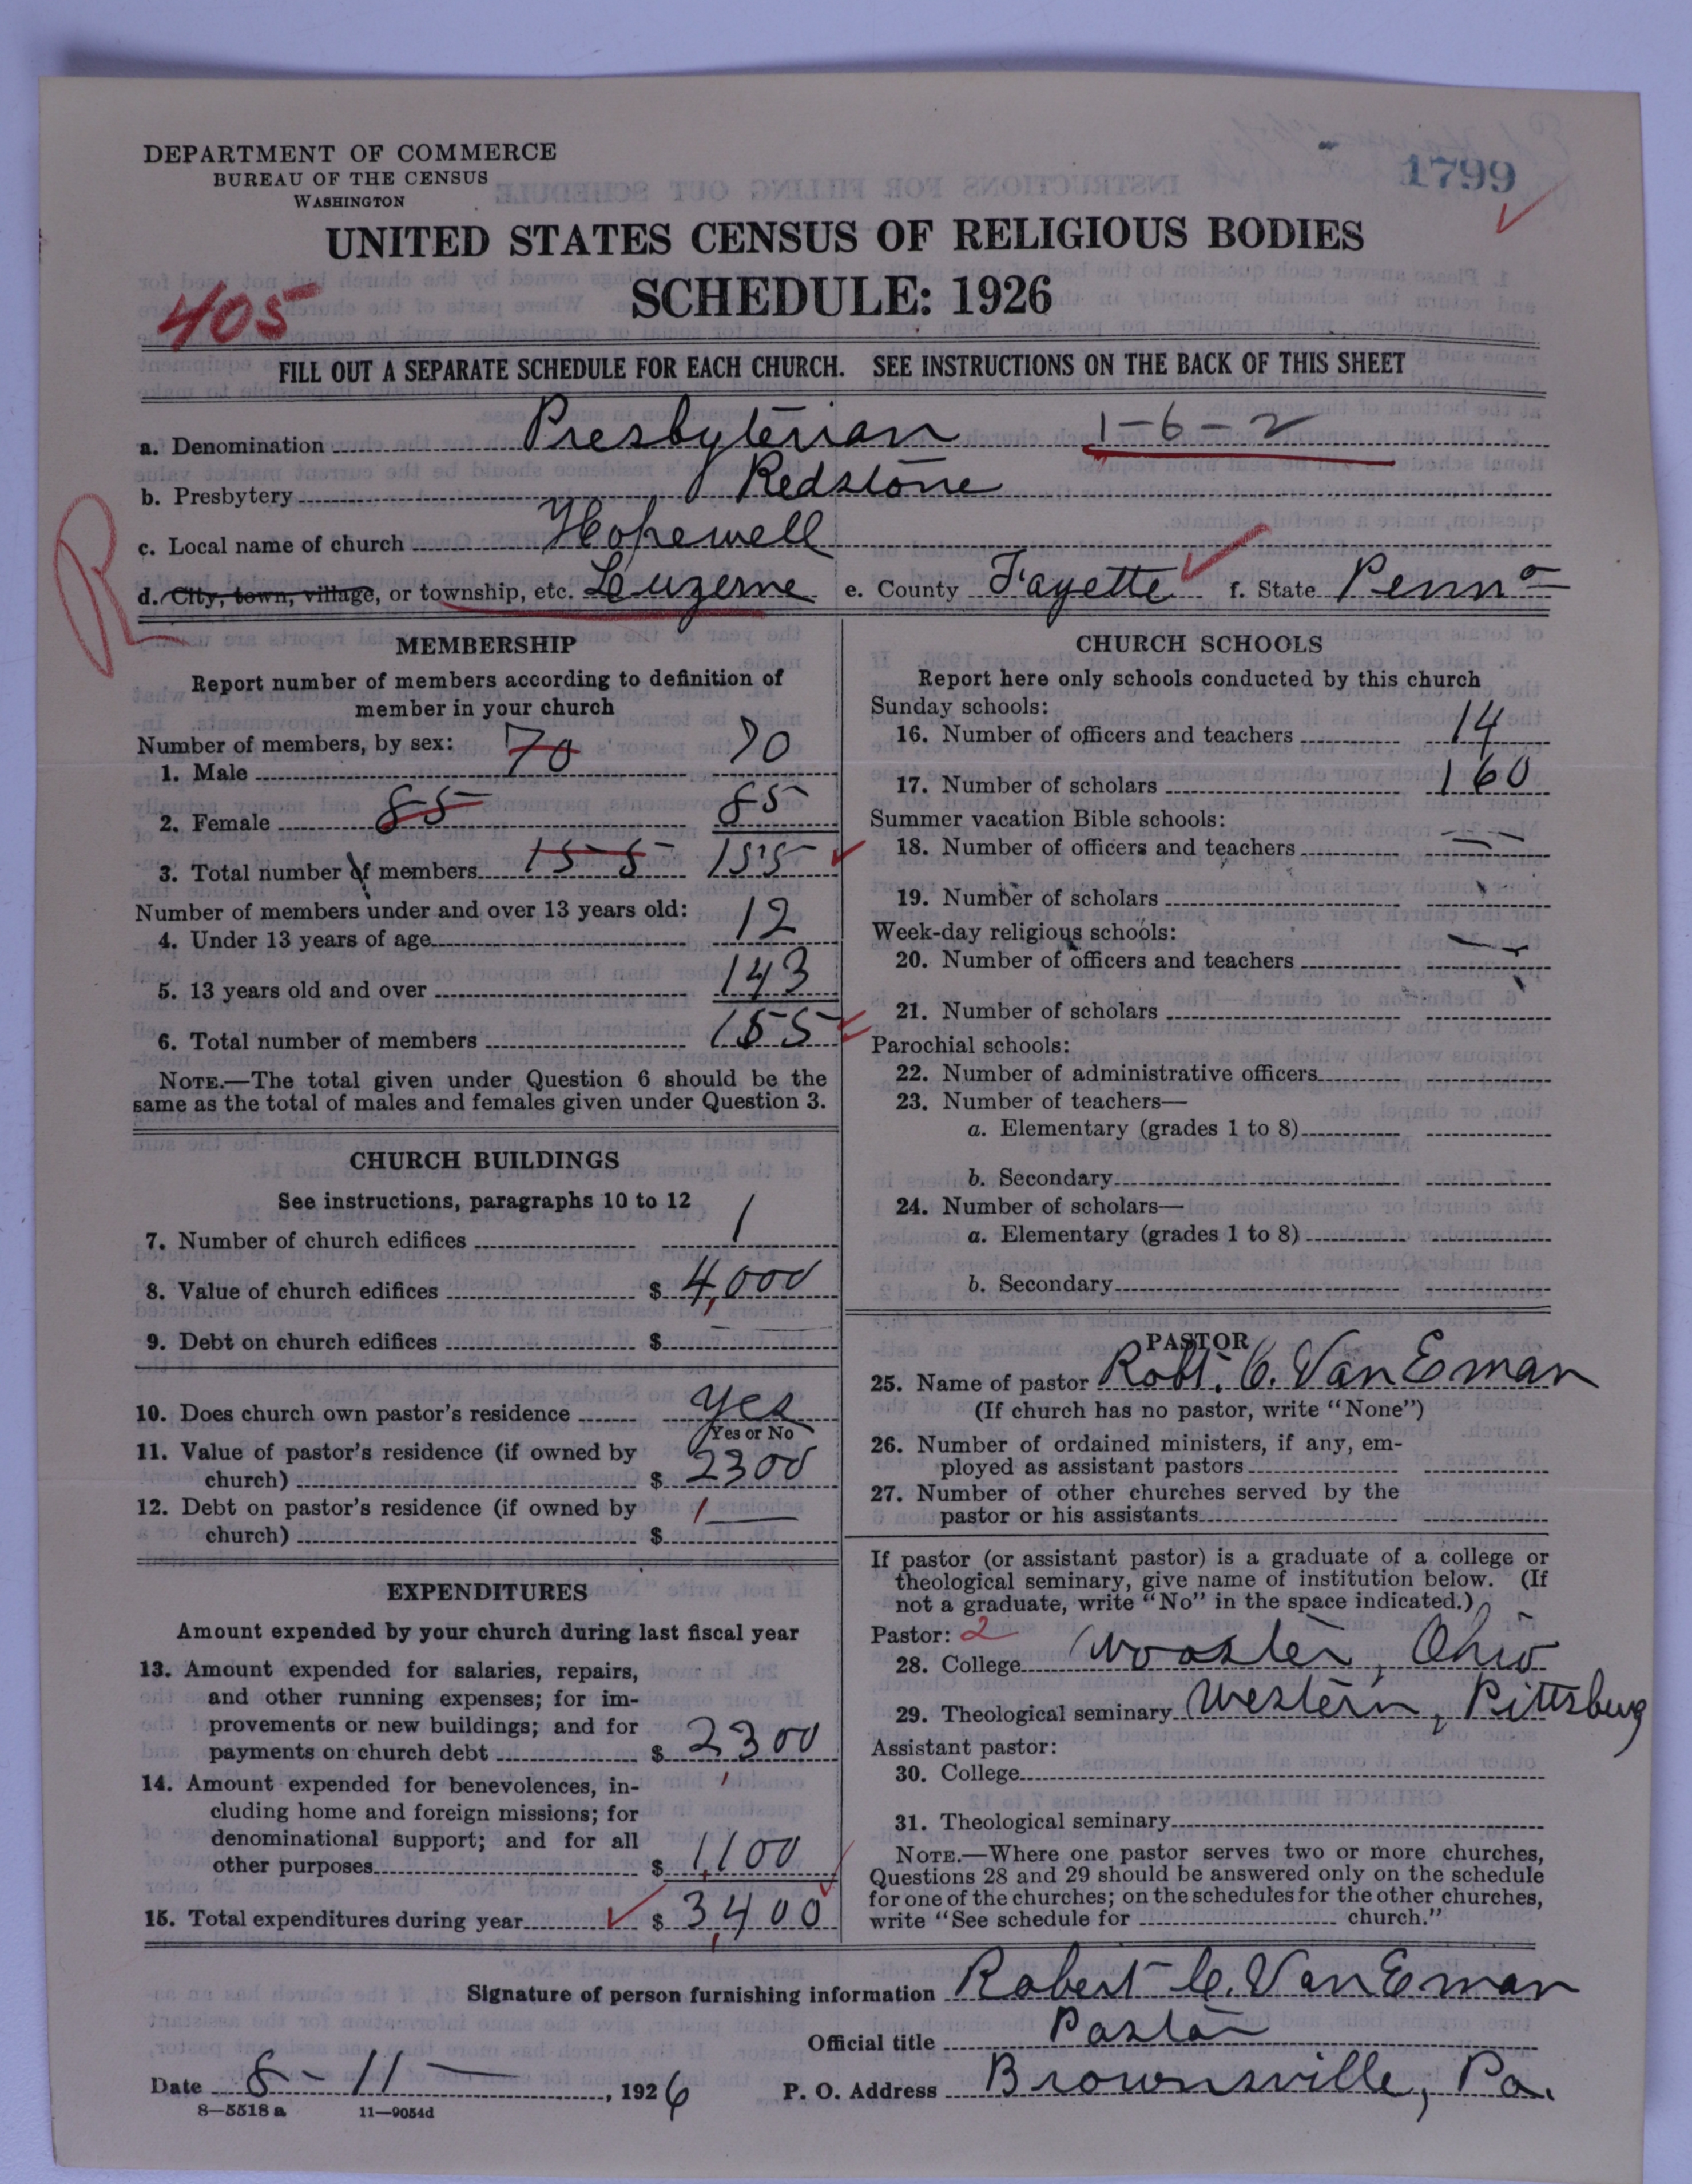 DEPARTMENT OF COMMERCE
BUREAU OF THE CENSUS
WASHINGTON
1799
UNITED STATES CENSUS OF RELIGIOUS BODIES
SCHEDULE: 1926
405
FILL OUT A SEPARATE SCHEDULE FOR EACH CHURCH. SEE INSTRUCTIONS ON THE BACK OF THIS SHEET
a. Denomination Presbyterian 1-6-2
b. Presbytery Redstone
c. Local name of church Hopewell
R
d. City, town, village, or township, etc. Luzerne e. County Fayette f. State Penna
MEMBERSHIP
Report number of members according to definition of
member in your church
Number of members, by sex:
1. Male 70 70
2. Female 85 85
3. Total number of members 155 155
Number of members under and over 13 years old:
4. Under 13 years of age 12
5. 13 years old and over 143
6. Total number of members 155
NOTE.—The total given under Question 6 should be the
same as the total of males and females given under Question 3.
CHURCH BUILDINGS
See instructions, paragraphs 10 to 12
7. Number of church edifices 1
8. Value of church edifices $ 4,000
9. Debt on church edifices $ —
10. Does church own pastor's residence yes
Yes or No
11. Value of pastor's residence (if owned by
church) $ 2300
12. Debt on pastor's residence (if owned by
church) $ —
EXPENDITURES
Amount expended by your church during last fiscal year
13. Amount expended for salaries, repairs,
and other running expenses; for im-
provements or new buildings; and for
payments on church debt $ 2300
14. Amount expended for benevolences, in-
cluding home and foreign missions; for
denominational support; and for all
other purposes $ 1,100
15. Total expenditures during year $ 3,400
CHURCH SCHOOLS
Report here only schools conducted by this church
Sunday schools:
16. Number of officers and teachers 14
17. Number of scholars 160
Summer vacation Bible schools:
18. Number of officers and teachers — —
19. Number of scholars
Week-day religious schools:
20. Number of officers and teachers — —
21. Number of scholars
Parochial schools:
22. Number of administrative officers
23. Number of teachers—
a. Elementary (grades 1 to 8)
b. Secondary
24. Number of scholars—
a. Elementary (grades 1 to 8)
b. Secondary
PASTOR
25. Name of pastor Robt. C. Van Eman
(If church has no pastor, write "None")
26. Number of ordained ministers, if any, em-
ployed as assistant pastors
27. Number of other churches served by the
pastor or his assistants
If pastor (or assistant pastor) is a graduate of a college or
theological seminary, give name of institution below. (If
not a graduate, write "No" in the space indicated.)
Pastor: 2
28. College Wooster, Ohio
29. Theological seminary Western, Pittsburg
Assistant pastor:
30. College
31. Theological seminary
NOTE.—Where one pastor serves two or more churches,
Questions 28 and 29 should be answered only on the schedule
for one of the churches; on the schedules for the other churches,
write "See schedule for church."
Signature of person furnishing information Robert C. Van Eman
Official title Pastor
Date 8-11-, 1926 P. O. Address Brownsville, Pa.
8—5518 a 11—9054d